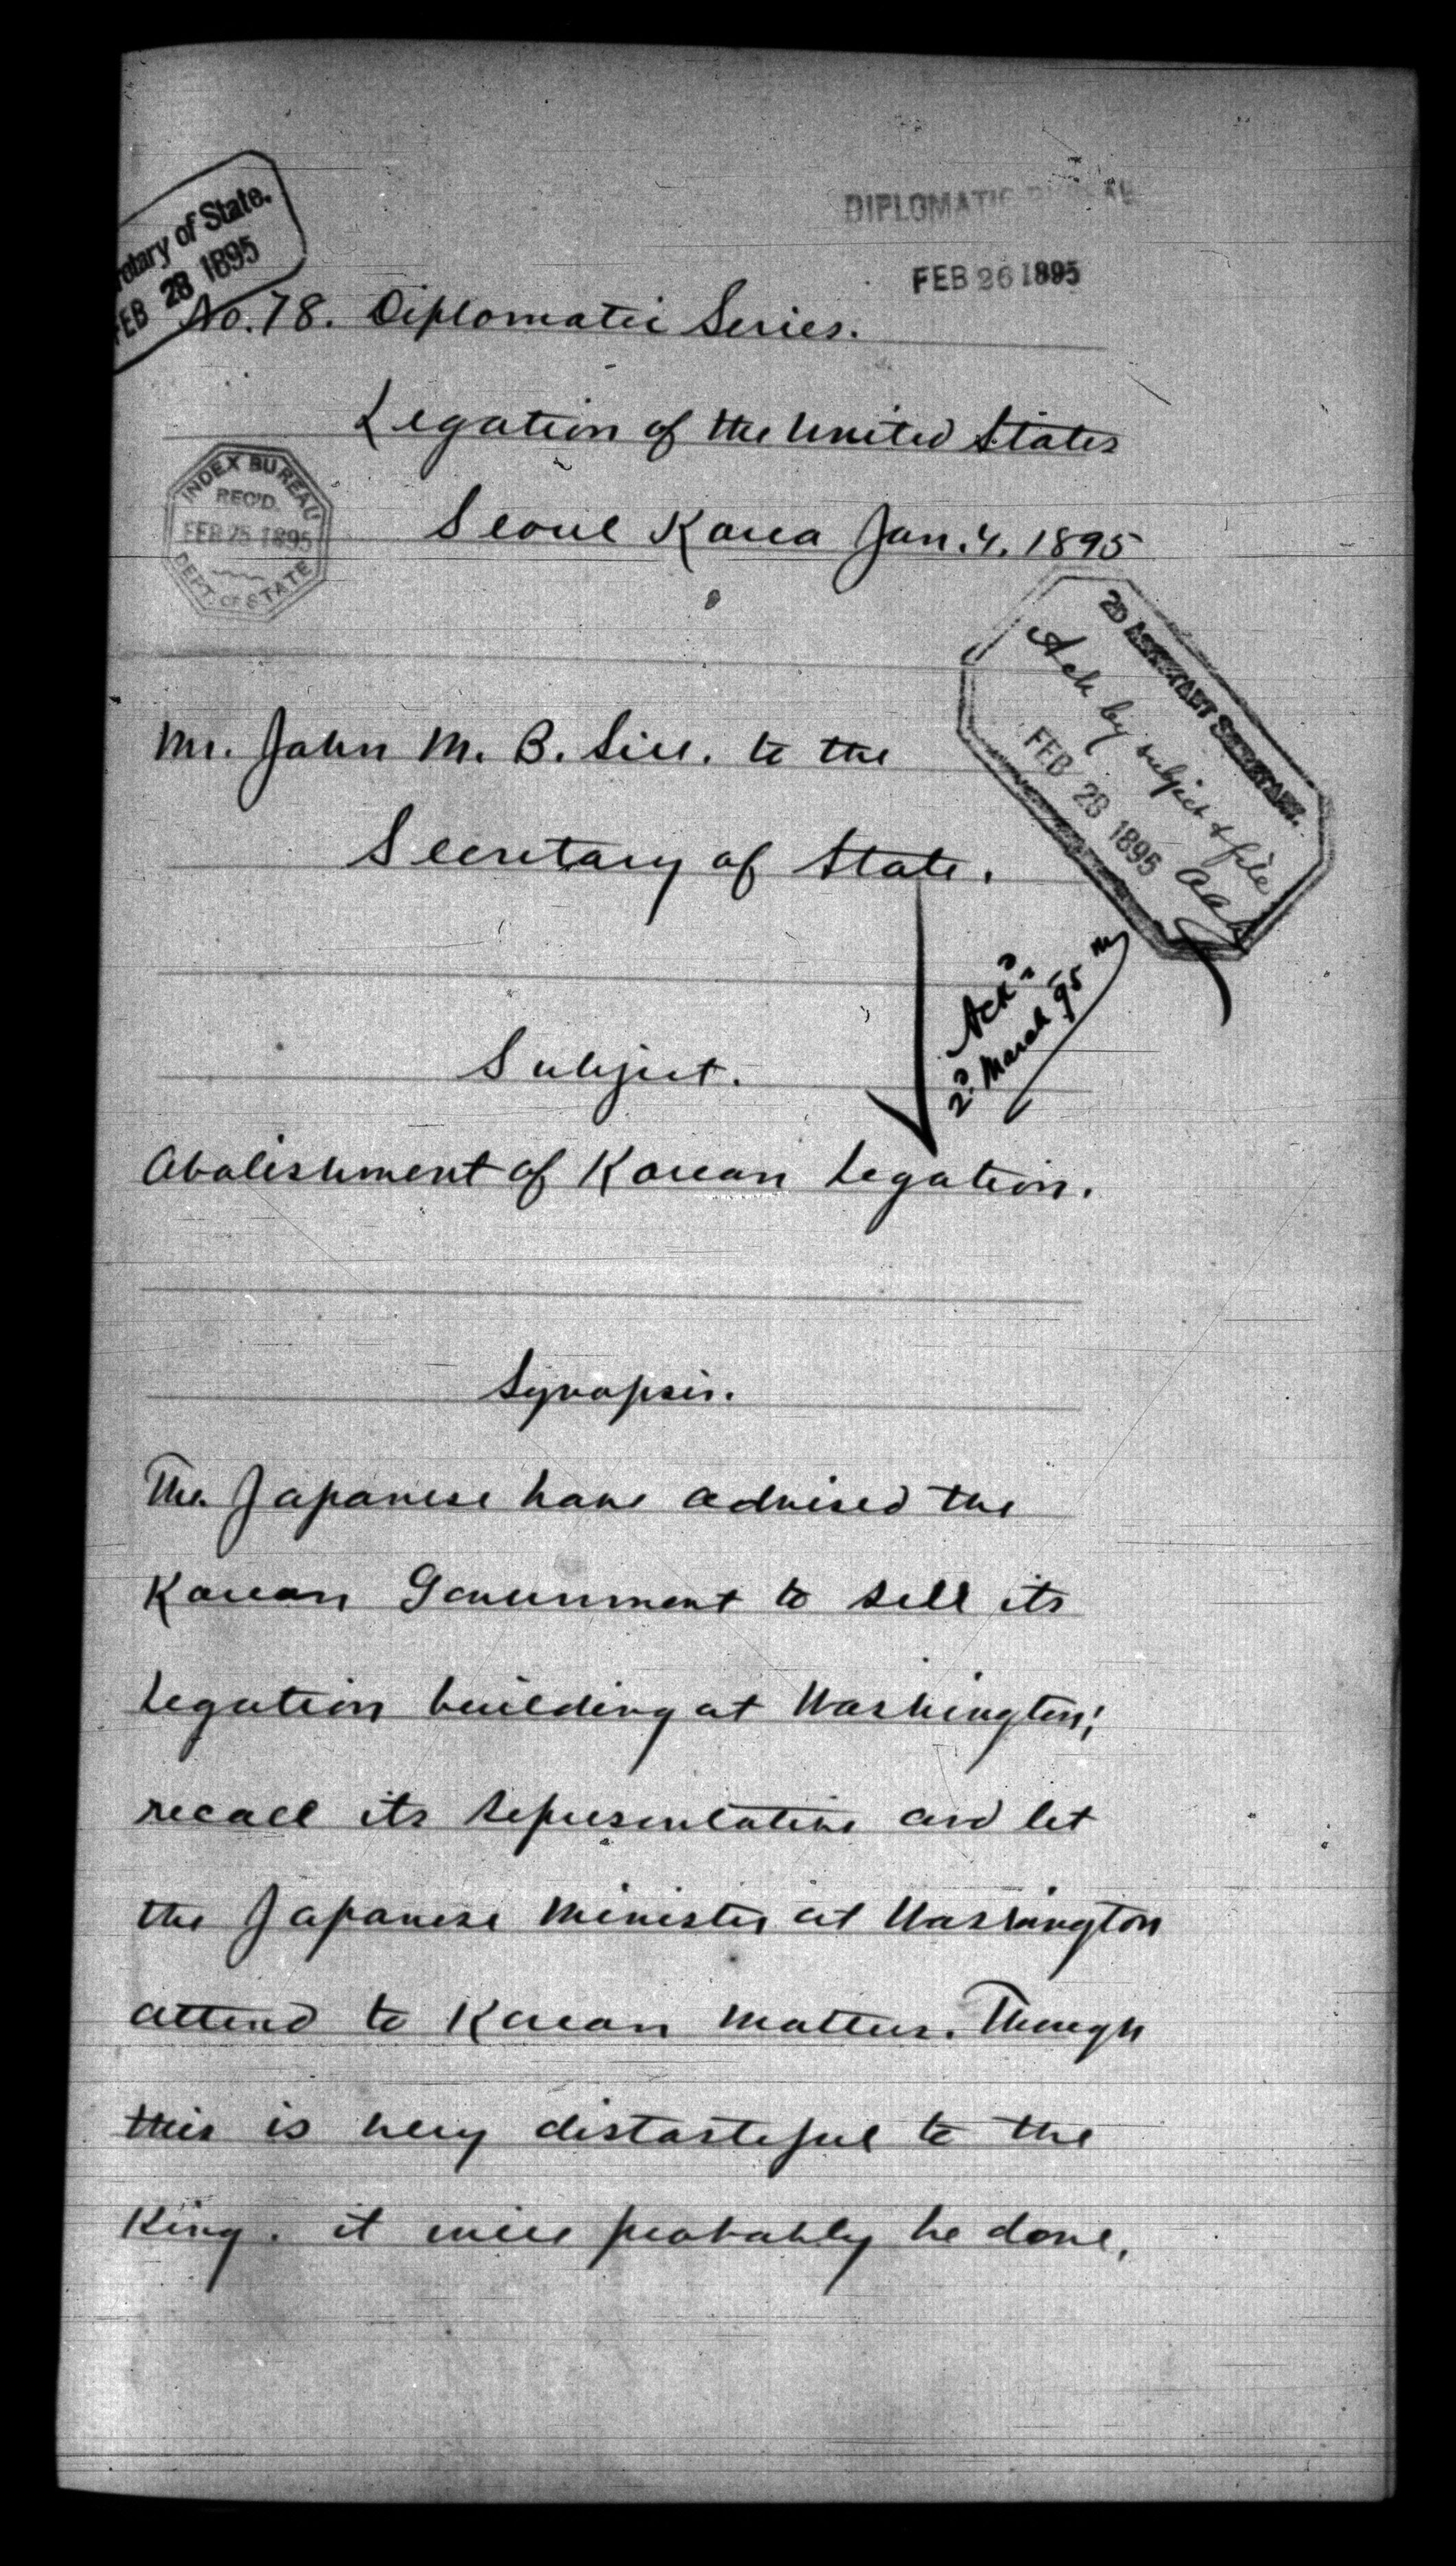 Secretary of State.
FEB 28 1895
DIPLOMATIC BUREAU
FEB 26 1895
No. 78. Diplomatic Series.
Legation of the United States
INDEX BUREAU
REC'D.
FEB 25 1895
DEPT. OF STATE
Seoul Korea Jan. 4. 1895
2D ASSISTANT SECRETARY.
Ack by subject & file
FEB 28 1895
AAA
Mr. John M. B. Sill. to the
Secretary of State.
Ack'd
2d March 95
Subject.
Abolishment of Korean Legation.
Synopsis.
The Japanese have advised the
Korean Government to sell its
Legation building at Washington;
recall its representative and let
the Japanese Minister at Washington
attend to Korean matters. Though
this is very distasteful to the
King. it will probably be done.